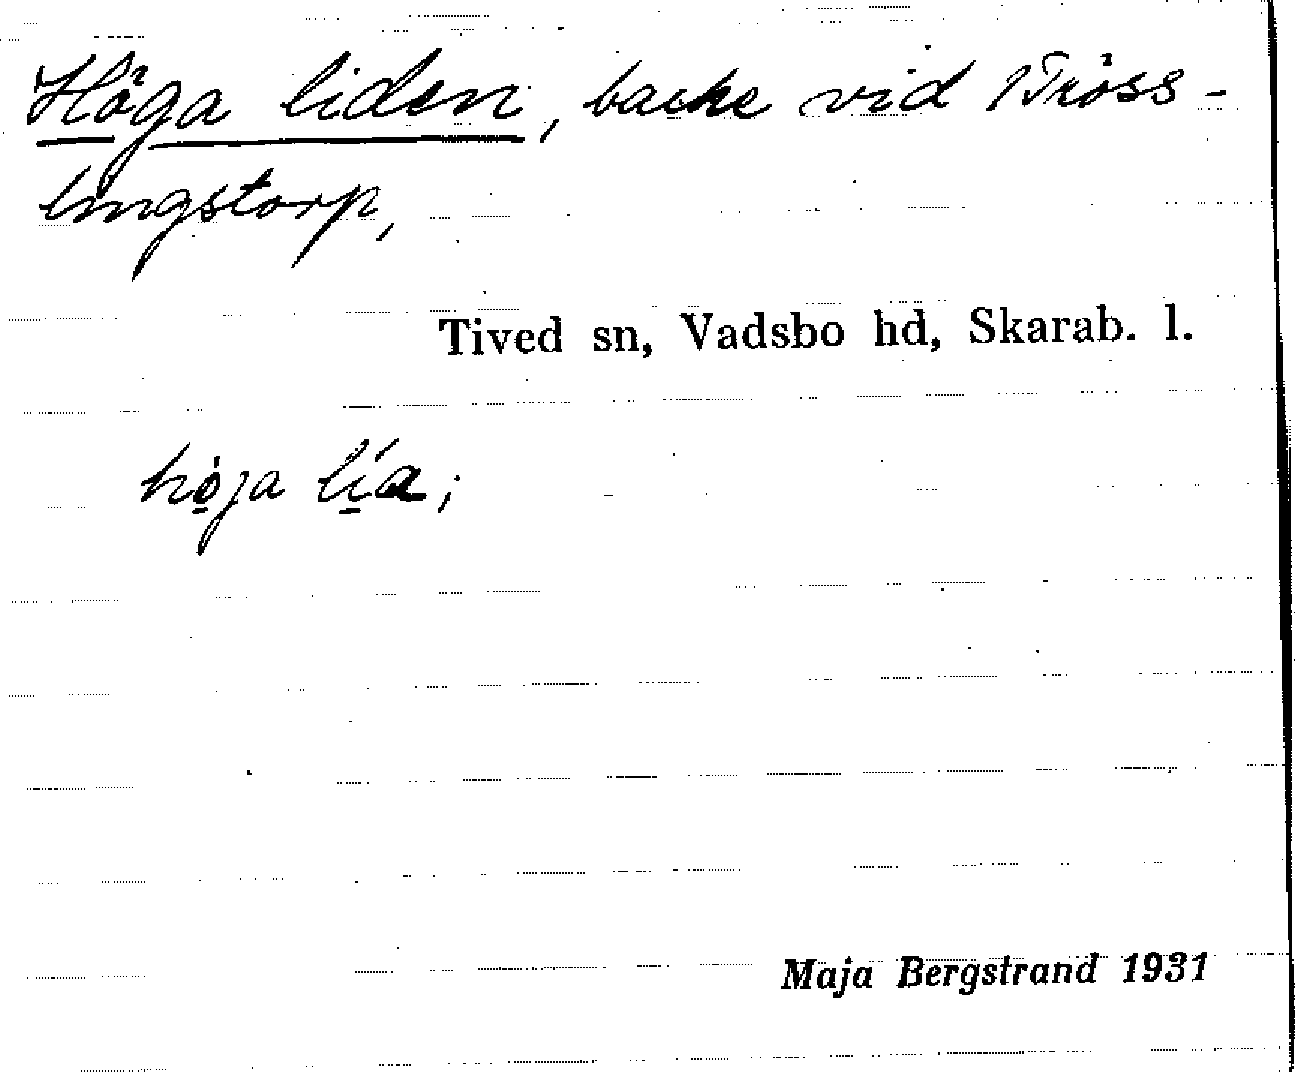 Höga liden, backe vid Tröss-
lingstorp,
Tived sn, Vadsbo hd, Skarab. l.
höga lia;
Maja Bergstrand 1931